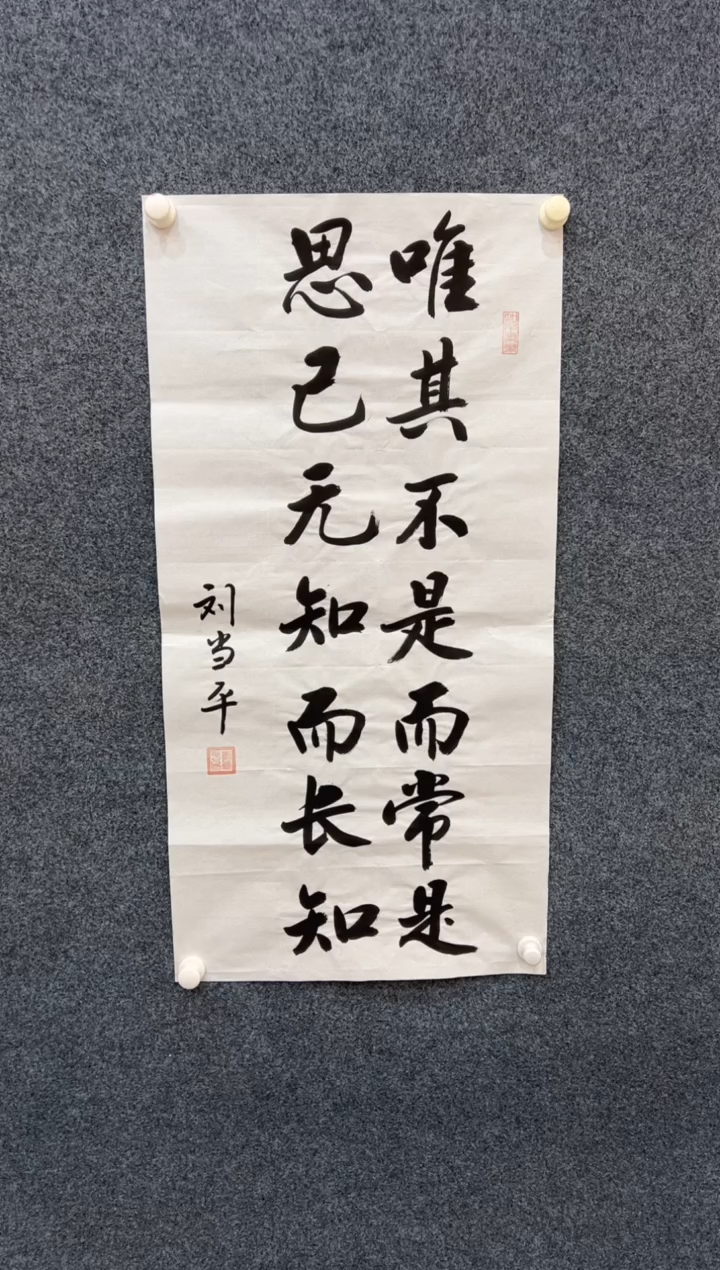 唯其不是而常是
思己无知而长知
刘当平